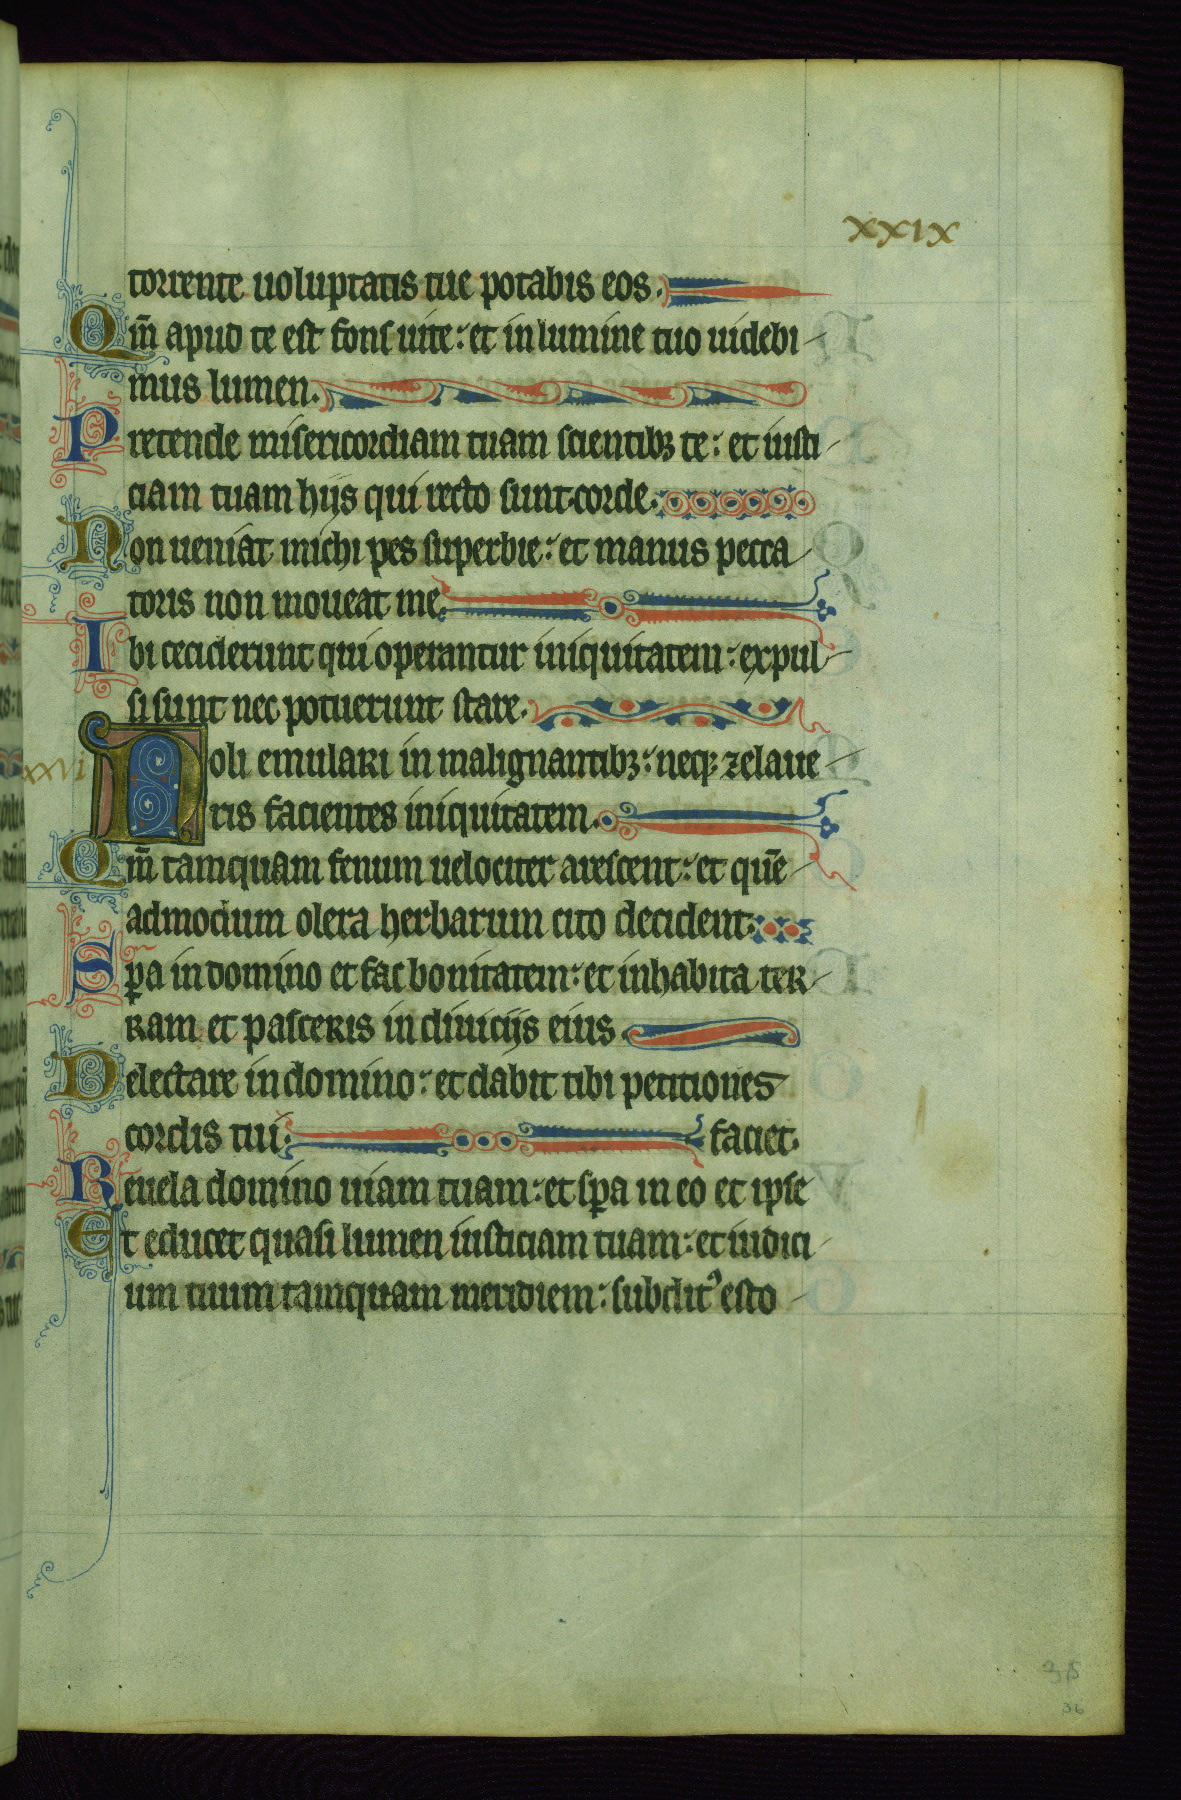 xxix
torrente uoluptatis tue potabis eos.
Qm̄ apud te est fons uite: et in lumine tuo uidebi
mus lumen.
Pretende misericordiam tuam scientibꝫ te: et iusti
ciam tuam hijs qui recto sunt corde.
Non ueniat michi pes superbie: et manus pecca
toris non moueat me.
Ibi ceciderunt qui operantur iniquitatem: expul
si sunt nec potuerunt stare.
xxvi
Noli emulari in malignantibꝫ: neqꝫ zelaue
ris facientes iniquitatem.
Qm̄ tamquam fenum uelociter arescent: et quē
admodum olera herbarum cito decident.
Sꝑa in domino et fac bonitatem: et inhabita ter
ram et pasceris in diuicijs eius.
Delectare in domino: et dabit tibi petitiones
cordis tui. faciet.
Reuela domino uiam tuam: et sꝑa in eo et ipse
Et educet quasi lumen iusticiam tuam: et iudici
um tuum tamquam meridiem: subditꝰ esto
36